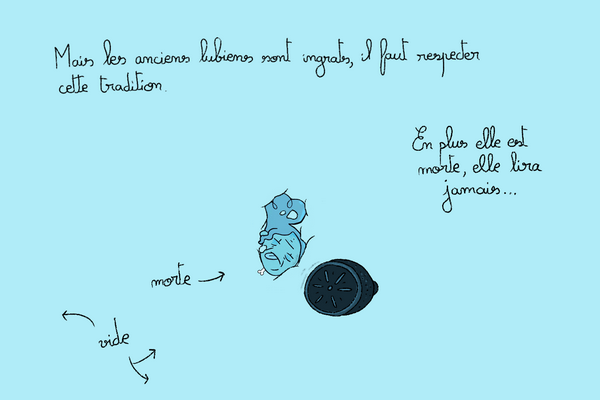 Mais les anciens lubiens sont ingrats, il faut respecter
cette tradition.
En plus elle est
morte, elle lira
jamais...
morte
vide